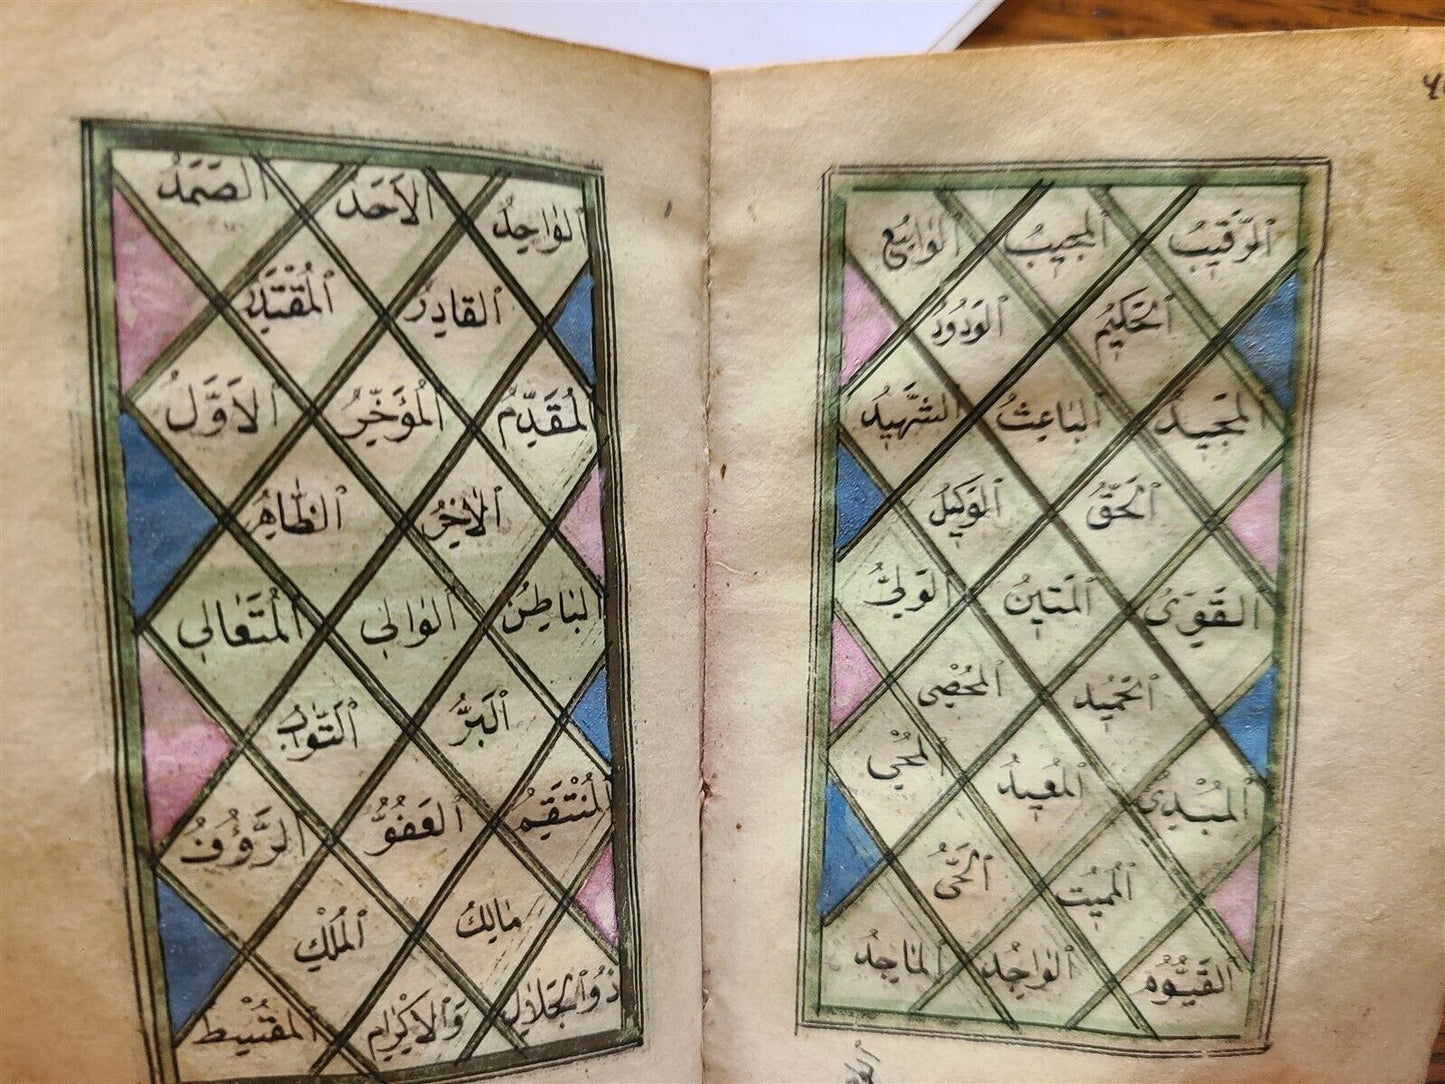 الرَّقِيبُ الْمُجِيبُ الْوَاسِعُ
الْحَكِيمُ الْوَدُودُ
الْمَجِيدُ الْبَاعِثُ الشَّهِيدُ
الْحَقُّ الْوَكِيلُ
الْقَوِىُّ الْمَتِينُ الْوَلِيُّ
الْحَمِيدُ الْمُحْصِى
الْمُبْدِئُ الْمُعِيدُ الْمُحْيِي
الْمُمِيتُ الْحَىُّ
الْقَيُّومُ الْوَاجِدُ الْمَاجِدُ
الْوَاحِدُ الْاَحَدُ الصَّمَدُ
الْقَادِرُ الْمُقْتَدِرُ
الْمُقَدِّمُ الْمُؤَخِّرُ الْاَوَّلُ
الْاٰخِرُ الظَّاهِرُ
الْبَاطِنُ الْوَالِي الْمُتَعَالِي
الْبَرُّ التَّوَّابُ
الْمُنْتَقِمُ الْعَفُوُّ الرَّؤُوفُ
مَالِكُ الْمُلْكِ
ذُو الْجَلَالِ وَالْاِكْرَامِ الْمُقْسِطُ